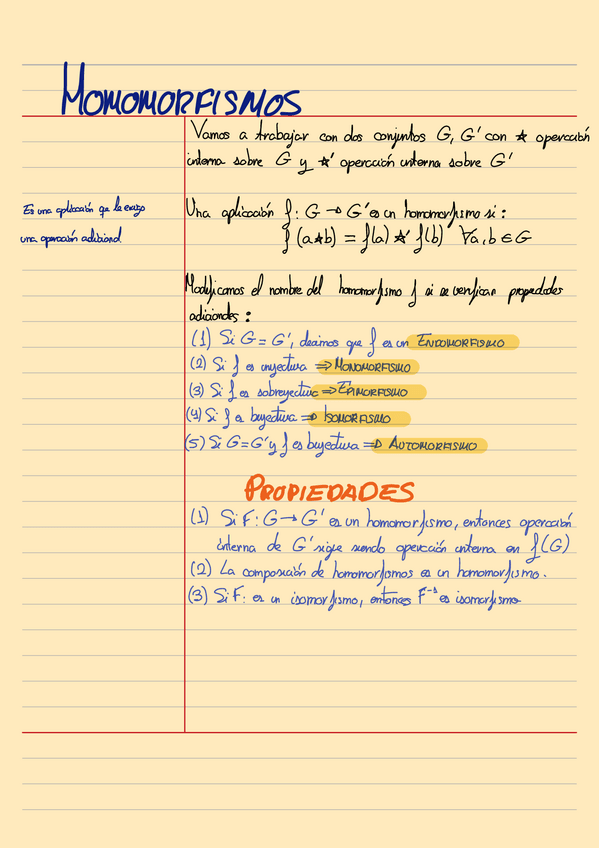 HOMOMORFISMOS
Vamos a trabajar con dos conjuntos G, G' con ★ operación
interna sobre G y ★' operación interna sobre G'
Es una aplicación que le exijo
una operación adicional.
Una aplicación f: G → G' es un homomorfismo si:
f(a★b) = f(a) ★' f(b) ∀a,b ∈ G
Modificamos el nombre del homomorfismo f si se verifican propiedades
adicionales:
(1) Si G = G', decimos que f es un ENDOMORFISMO
(2) Si f es inyectiva ⇒ MONOMORFISMO
(3) Si f es sobreyectiva ⇒ EPIMORFISMO
(4) Si f es biyectiva ⇒ ISOMORFISMO
(5) Si G=G' y f es biyectiva ⇒ AUTOMORFISMO
PROPIEDADES
(1) Si F: G → G' es un homomorfismo, entonces operación
interna de G' sigue siendo operación interna en f(G)
(2) La composición de homomorfismos es un homomorfismo.
(3) Si F: es un isomorfismo, entonces F⁻¹ es isomorfismo